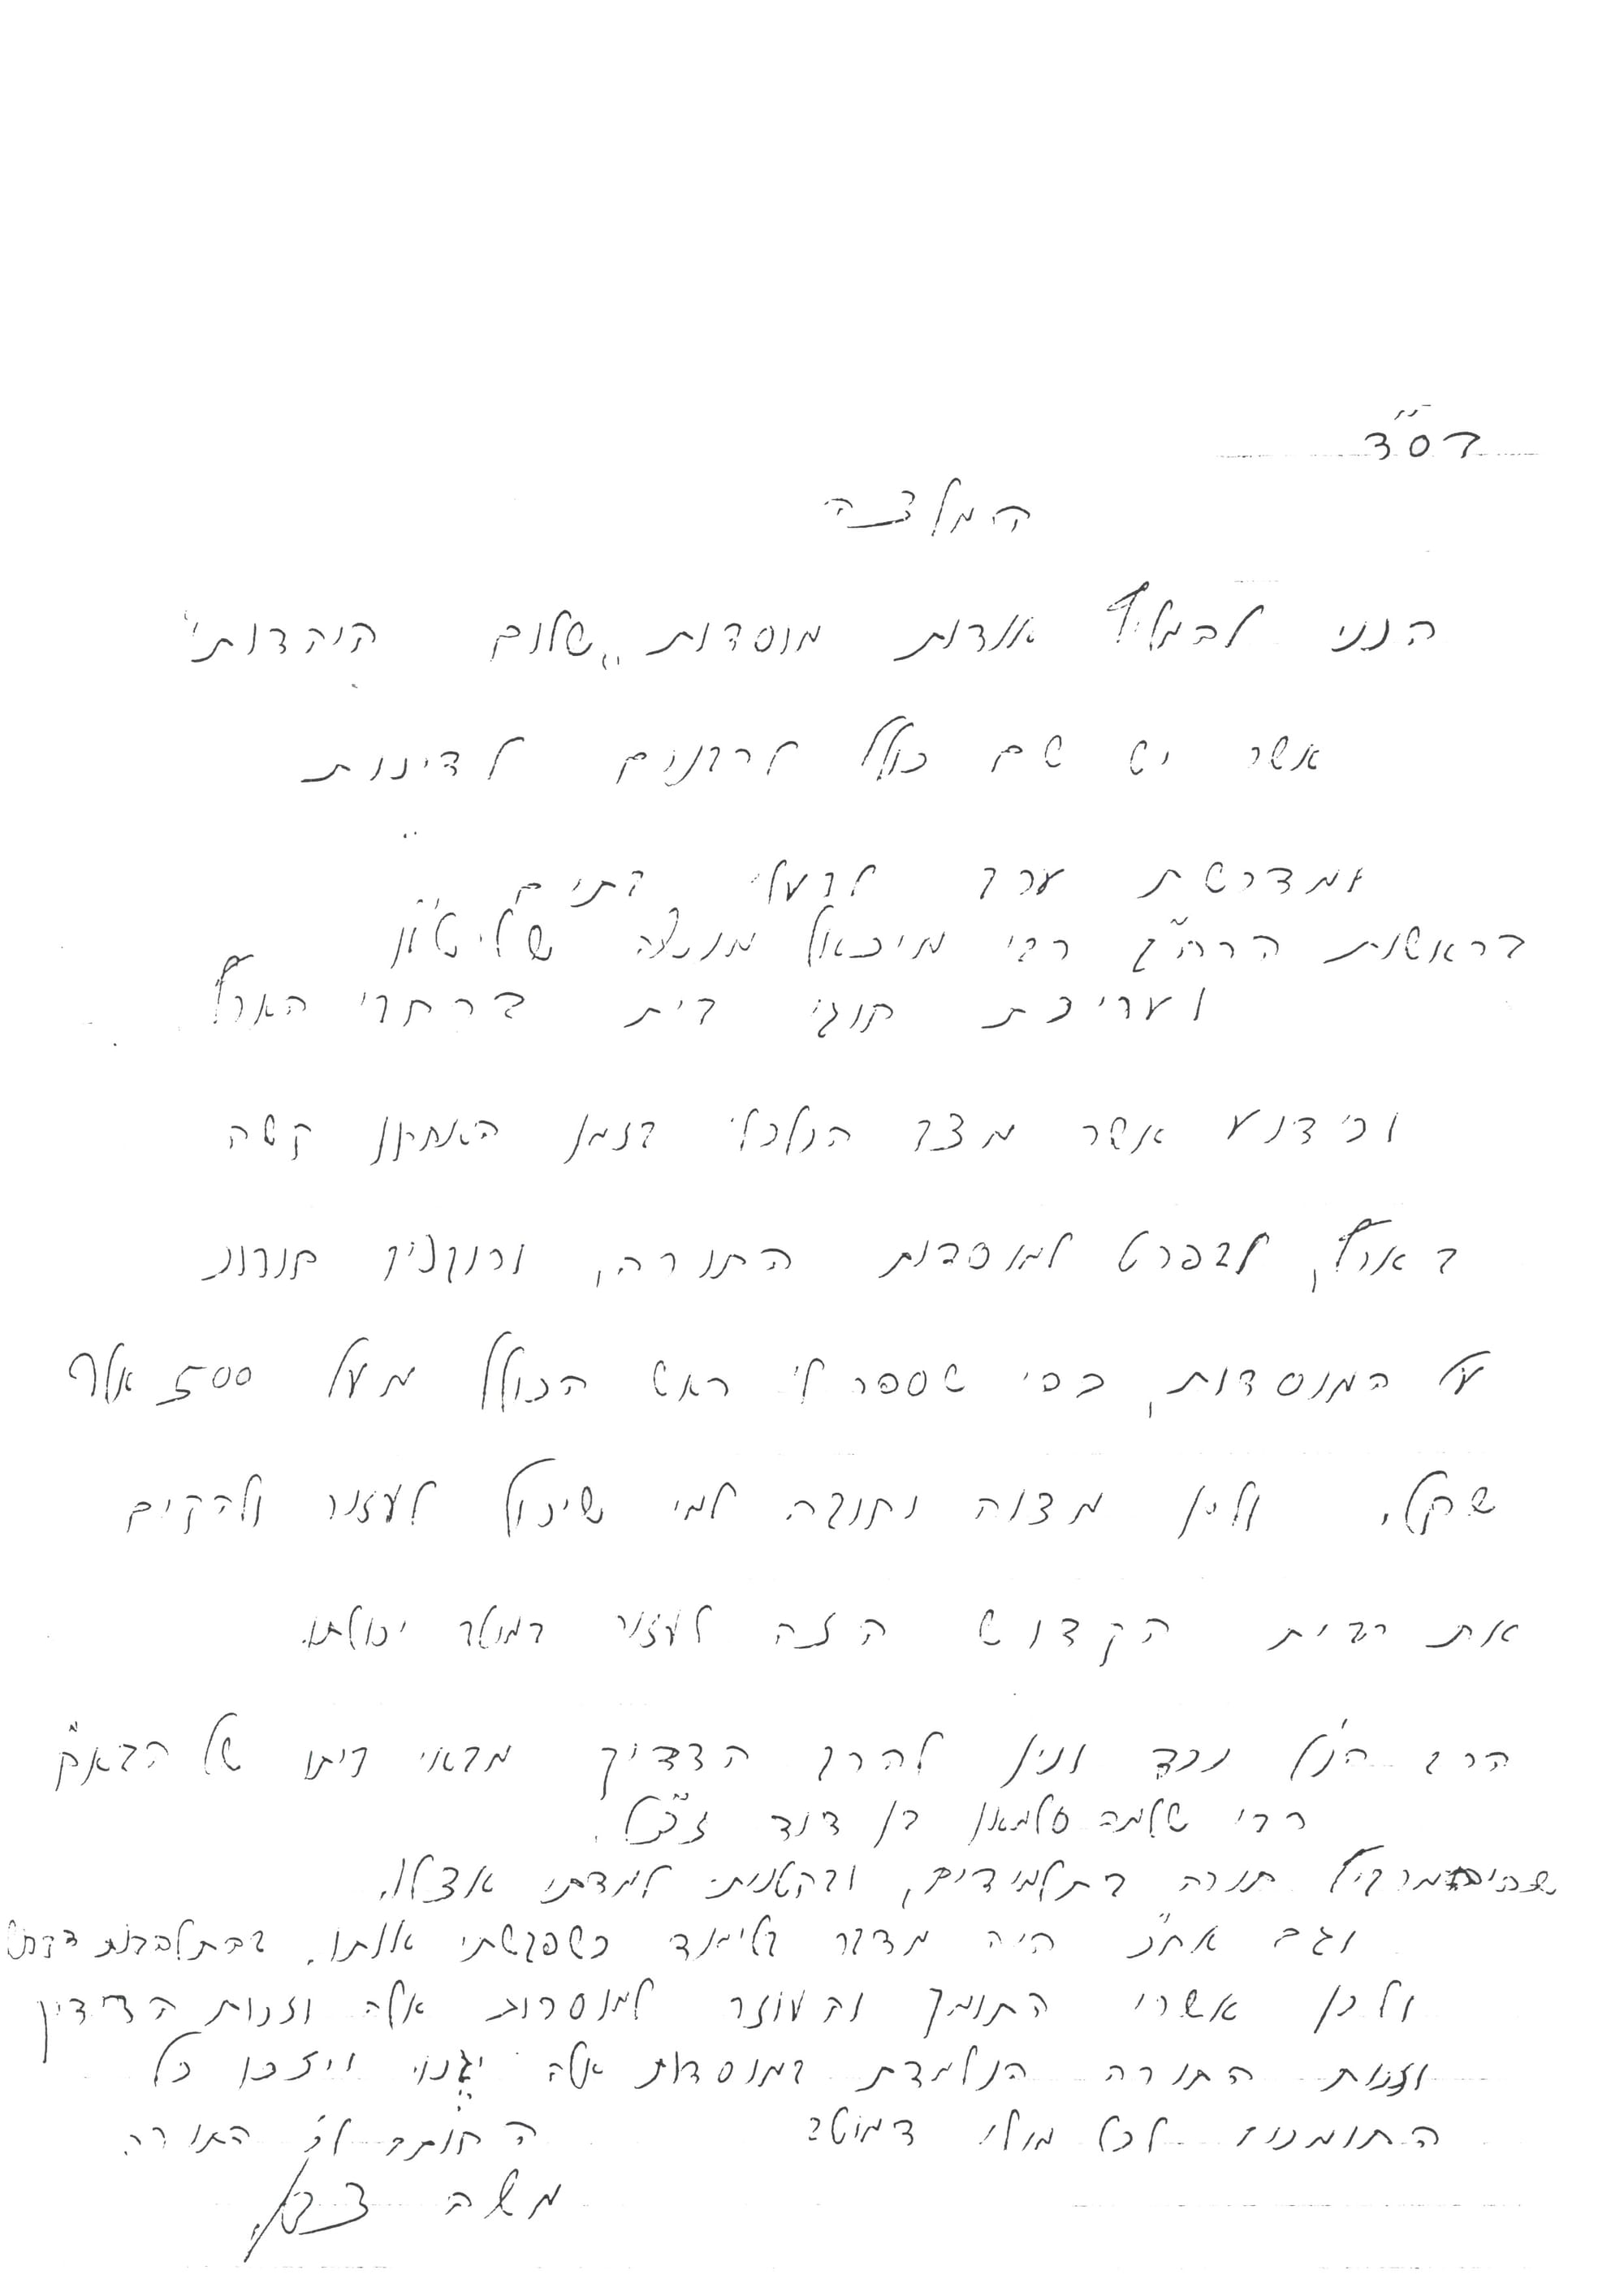 בס"ד
המלצה
הנני להמליץ אודות מוסדות "שלום היהדות"
אשר יש שם כולל לרבנים לדינות
ומדרשת ערב לבעלי בתים
בראשות הרה"ג רבי מיכאל שליט"א
ועריכת חוגי בית ברחבי הארץ
וכידוע אשר מצב הכלכלי בזמן האחרון קשה
בארץ, ובפרט למוסדות התורה, ורובצין חובות
על המוסדות, כפי שספר לי ראש הכולל מעל 500 אלף
שקל. ולכן מצוה וחובה למי שיכול לעזור ולהקים
את הבית הקדוש הזה לעזור במיטב יכולתו.
הרב הנ"ל נכד ונין להרב הצדיק מבאי ביתו של
רבי שלמה סלמאן בן דוד זצ"ל.
שהיה מרביץ תורה בתלמידים, ובקטנותי למדתי אצלו.
וגם אח"כ היה מדבר בלימוד כשפגשתי אותו. בהתלהבות
ולכן אשרי התומך והעוזר למוסדות אלה וזכות הצדיק
וזכות התורה הנלמדת במוסדות אלה יגינו ויזכו כל
התומכים לכל מילי דמיטב החותם לכ' התורה
משה